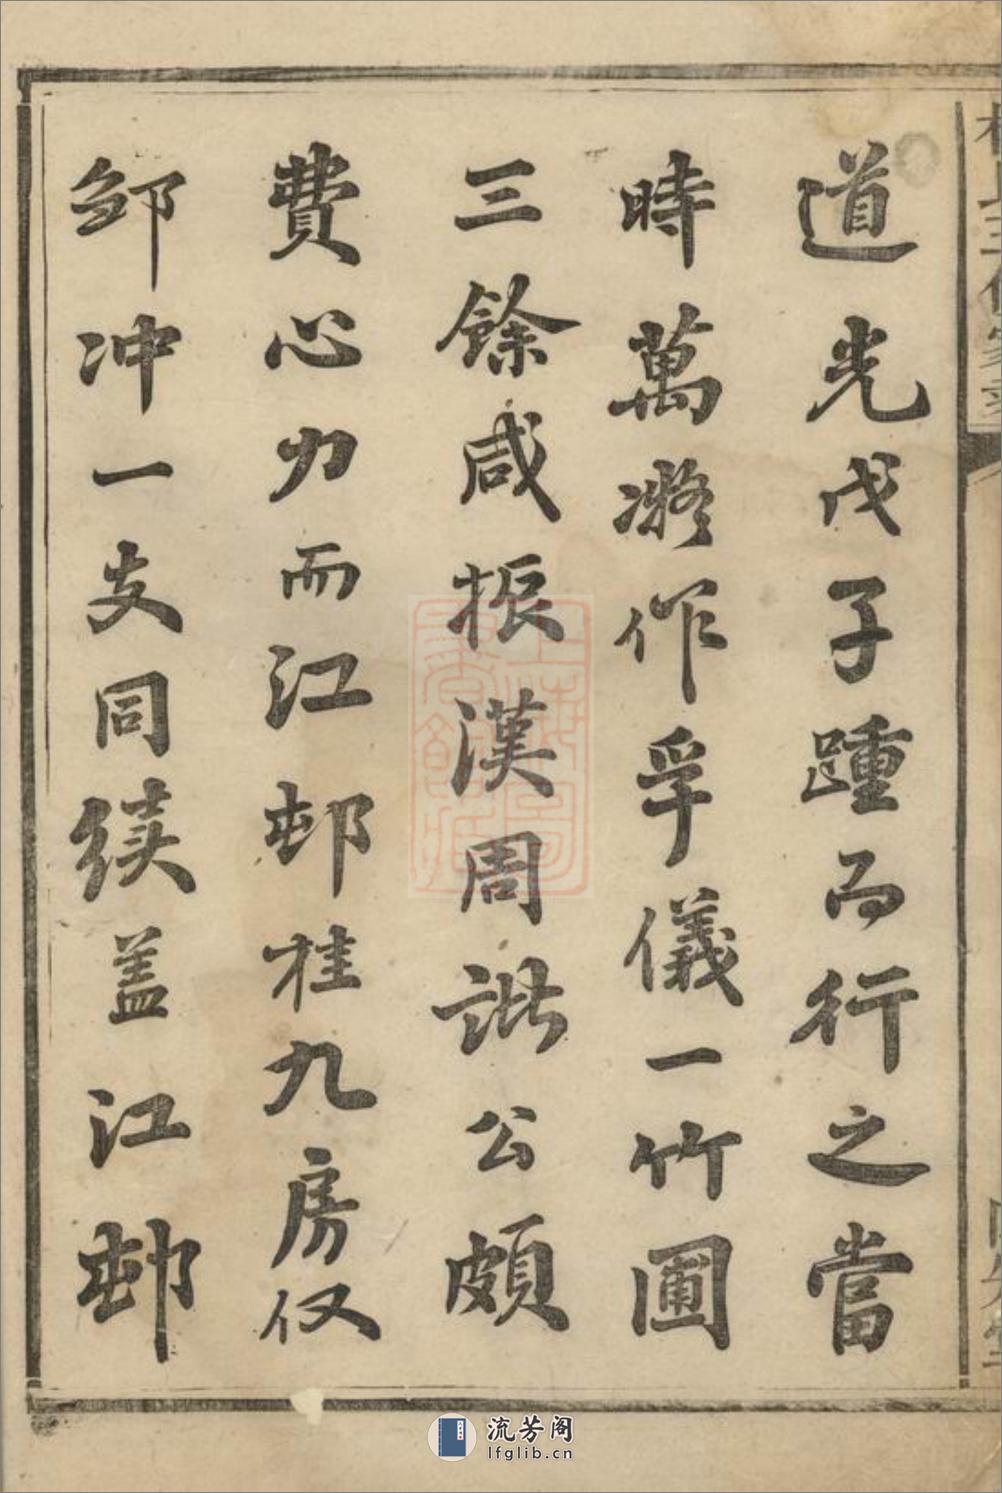 道光戊子踵而行之當
時萬凝作孚儀一竹圃
三餘咸振漢周諧公頗
費心力而江邨桂九房仅
邹冲一支同续盖江邨
流芳阁
lfglib.cn